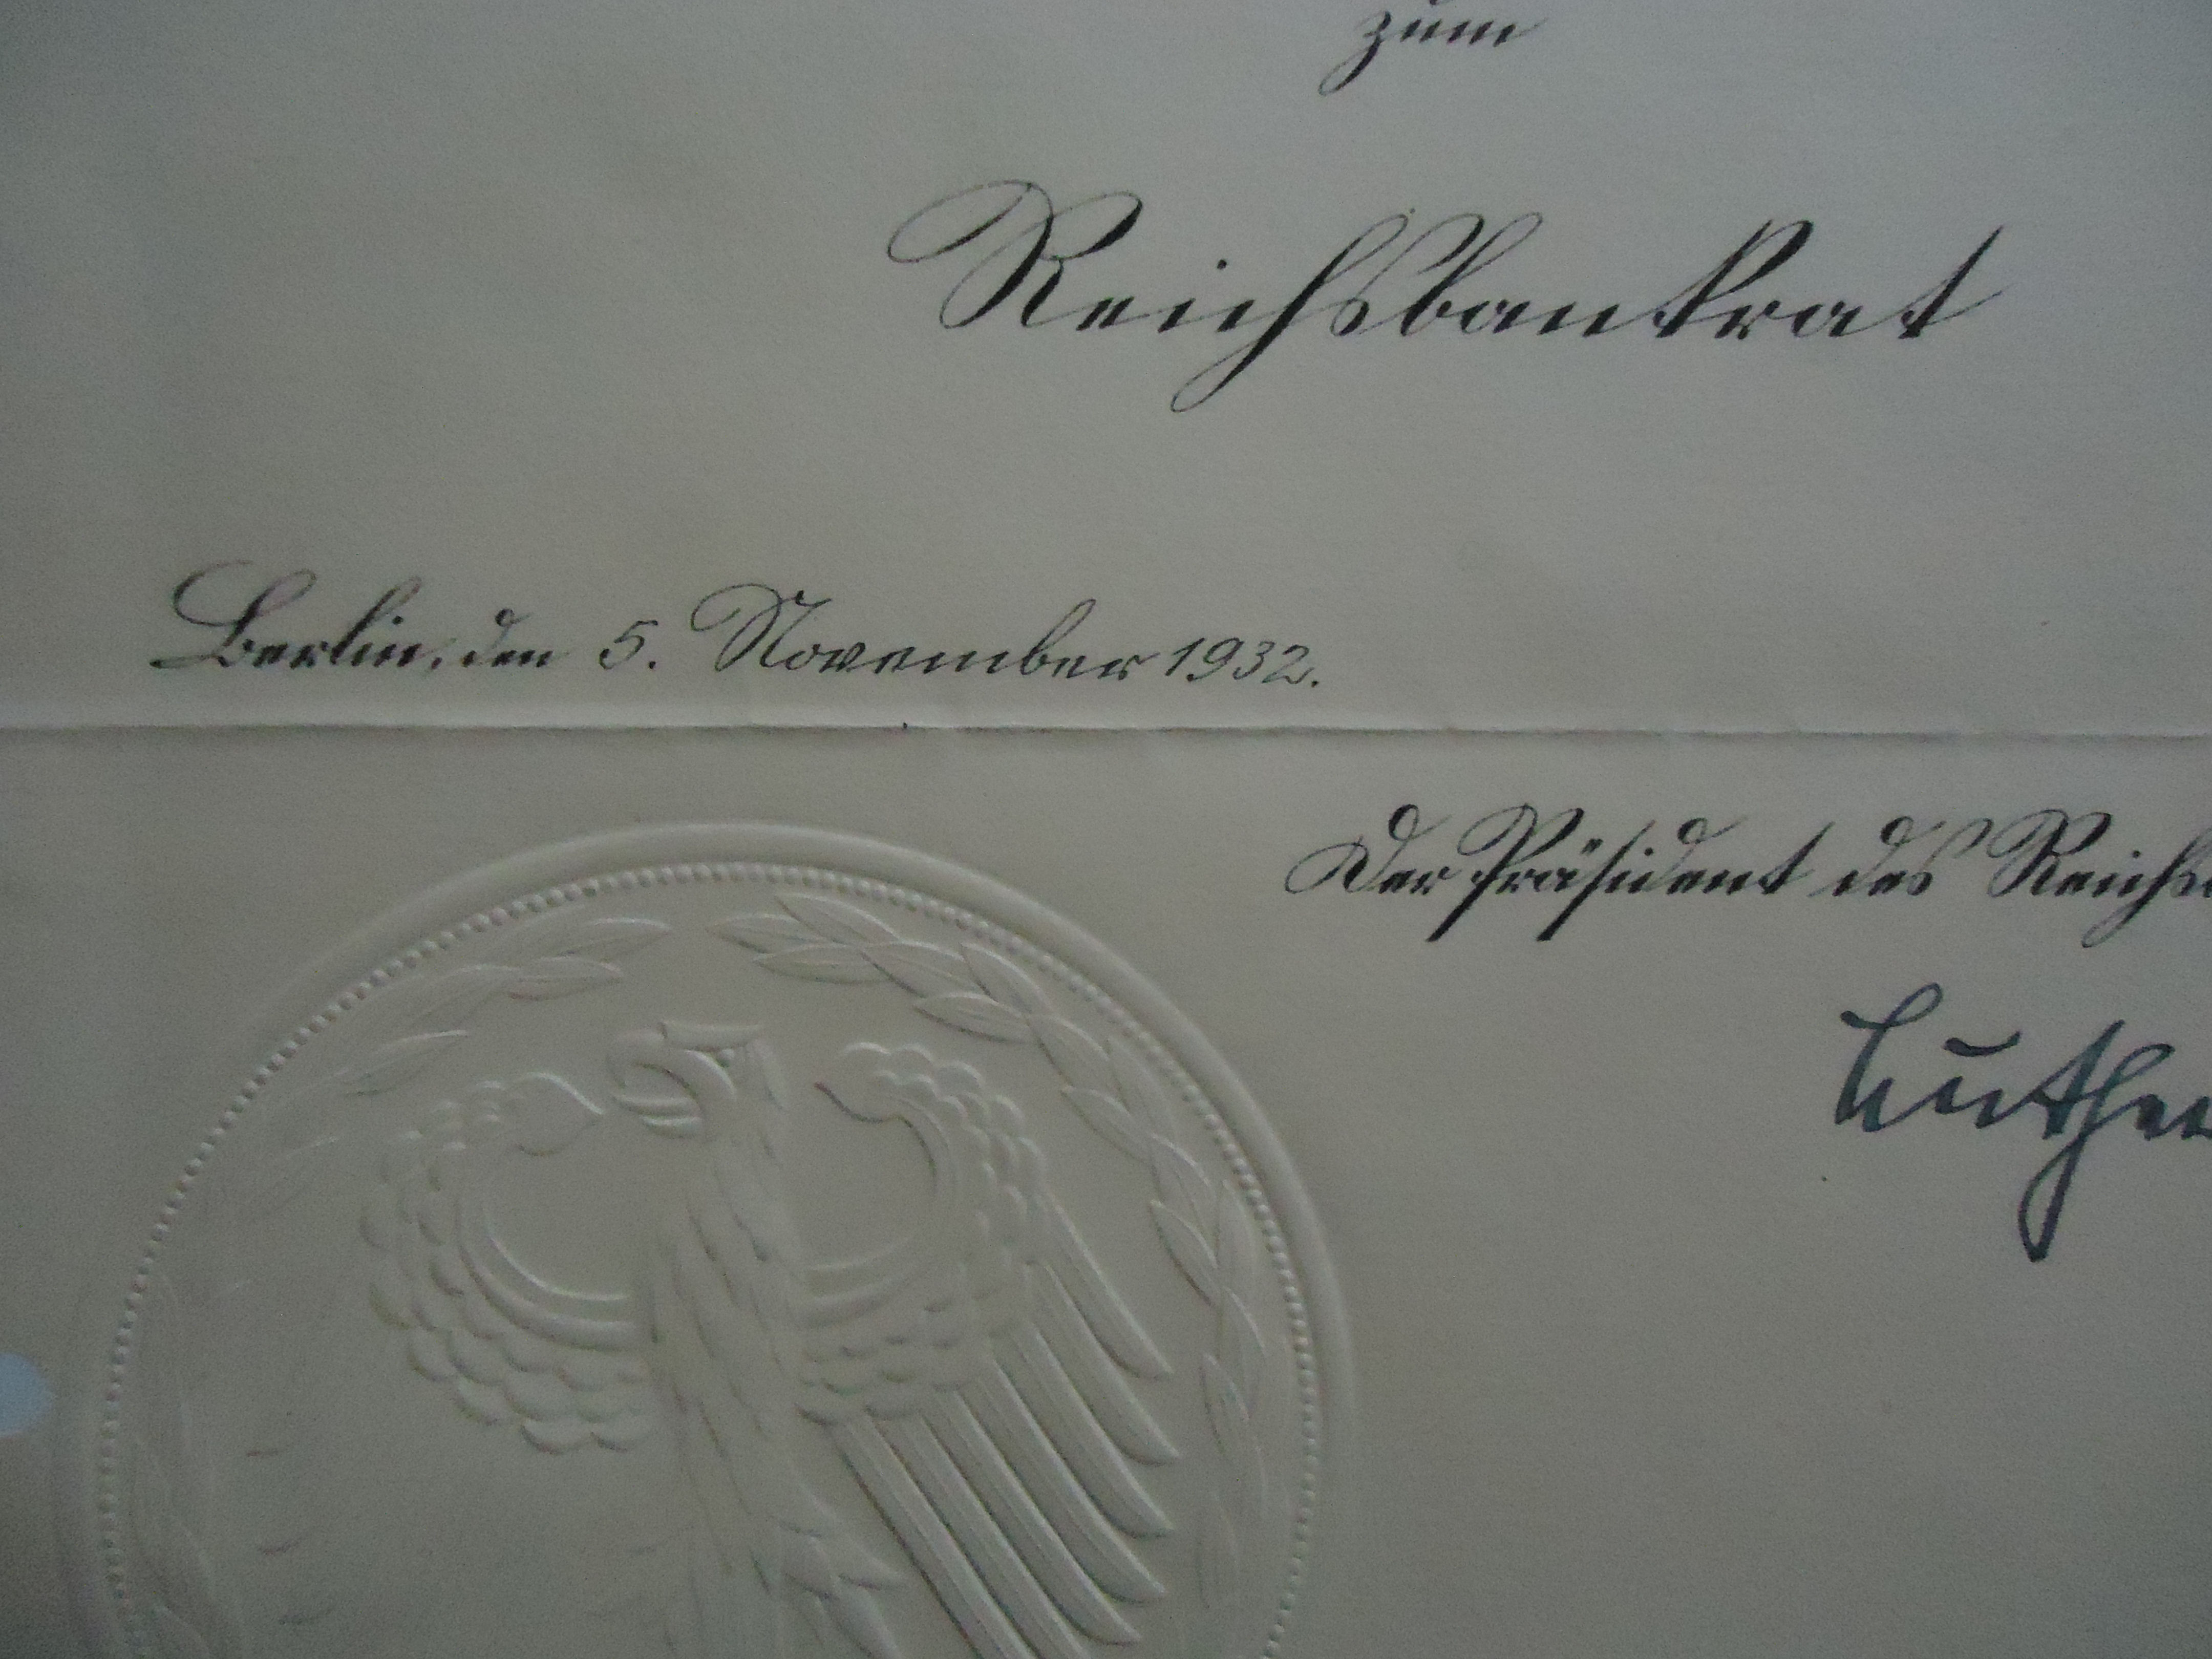 zum
Reichsbankrat
Berlin, den 5. November 1932.
Der Präsident des Reichsb
Luther